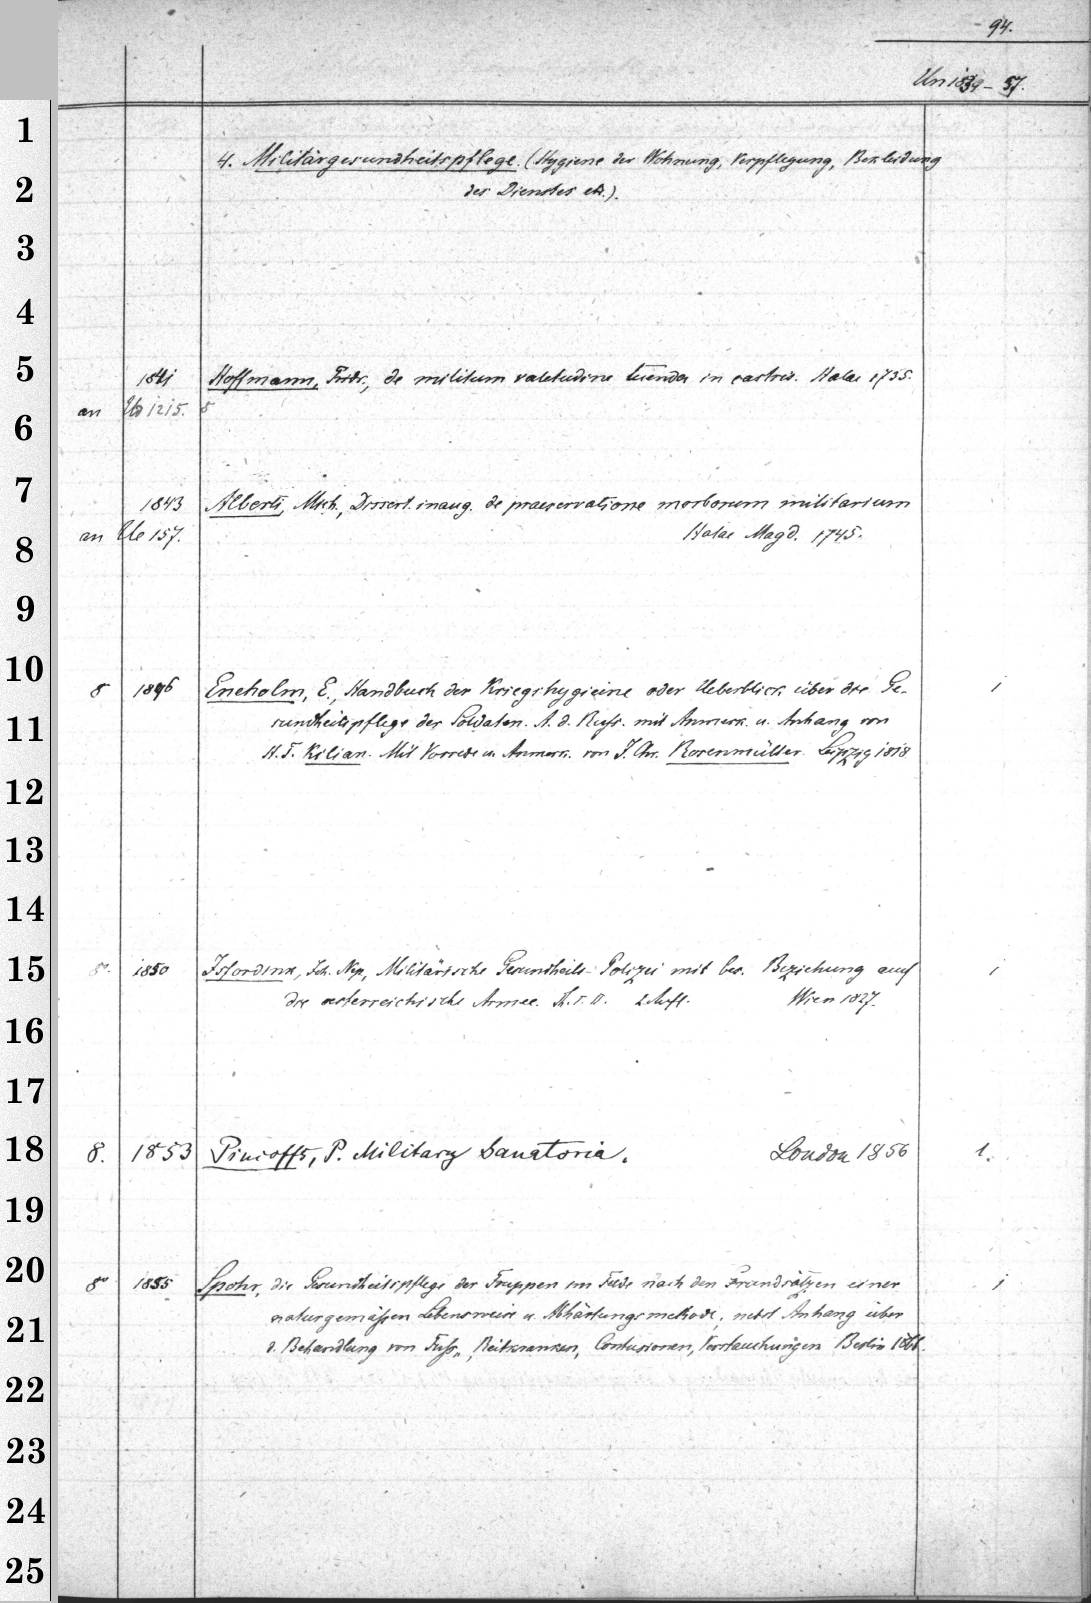 94.
Un 1839 - 57.
1
4. Militärgesundheitspflege. (Hygiene der Wohnung, Verpflegung, Bekleidung
2
des Dienstes etc.).
3
4
5
1841 Hoffmann, Fridr., de militum valetudine tuenda in castris. Halae 1735.
an Ub 1215. 8
6
7
1843 Alberti, Mich., Dissert. inaug. de praeservatione morborum militarium
an Ue 157. Halae Magd. 1745.
8
9
10
8 1846 Eneholm, E., Handbuch der Kriegshygieine oder Ueberblick über die Ge-
11
sundheitspflege der Soldaten. A. d. Russ. mit Anmerk. u. Anhang von
H. F. Kilian. Mit Vorrede u. Anmerk. von J. Chr. Rosenmüller. Leipzig 1818 1
12
13
14
15
8. 1850 Isfordink, Joh. Nep., Militärische Gesundheits-Polizei mit bes. Beziehung auf 1
die oesterreichische Armee. Th. I. II. 2 Aufl. Wien 1827.
16
17
18
8. 1853 Pincoffs, P. Military Sanatoria. London 1856 1.
19
20
8° 1855 Spohr, die Gesundheitspflege der Truppen im Felde nach den Grundsätzen einer 1
21
naturgemässen Lebensweise u. Abhärtungsmethode, nebst Anhang über
d. Behandlung von Fuss-, Reitkranken, Contusionen, Verstauchungen Berlin 1866.
22
23
24
25